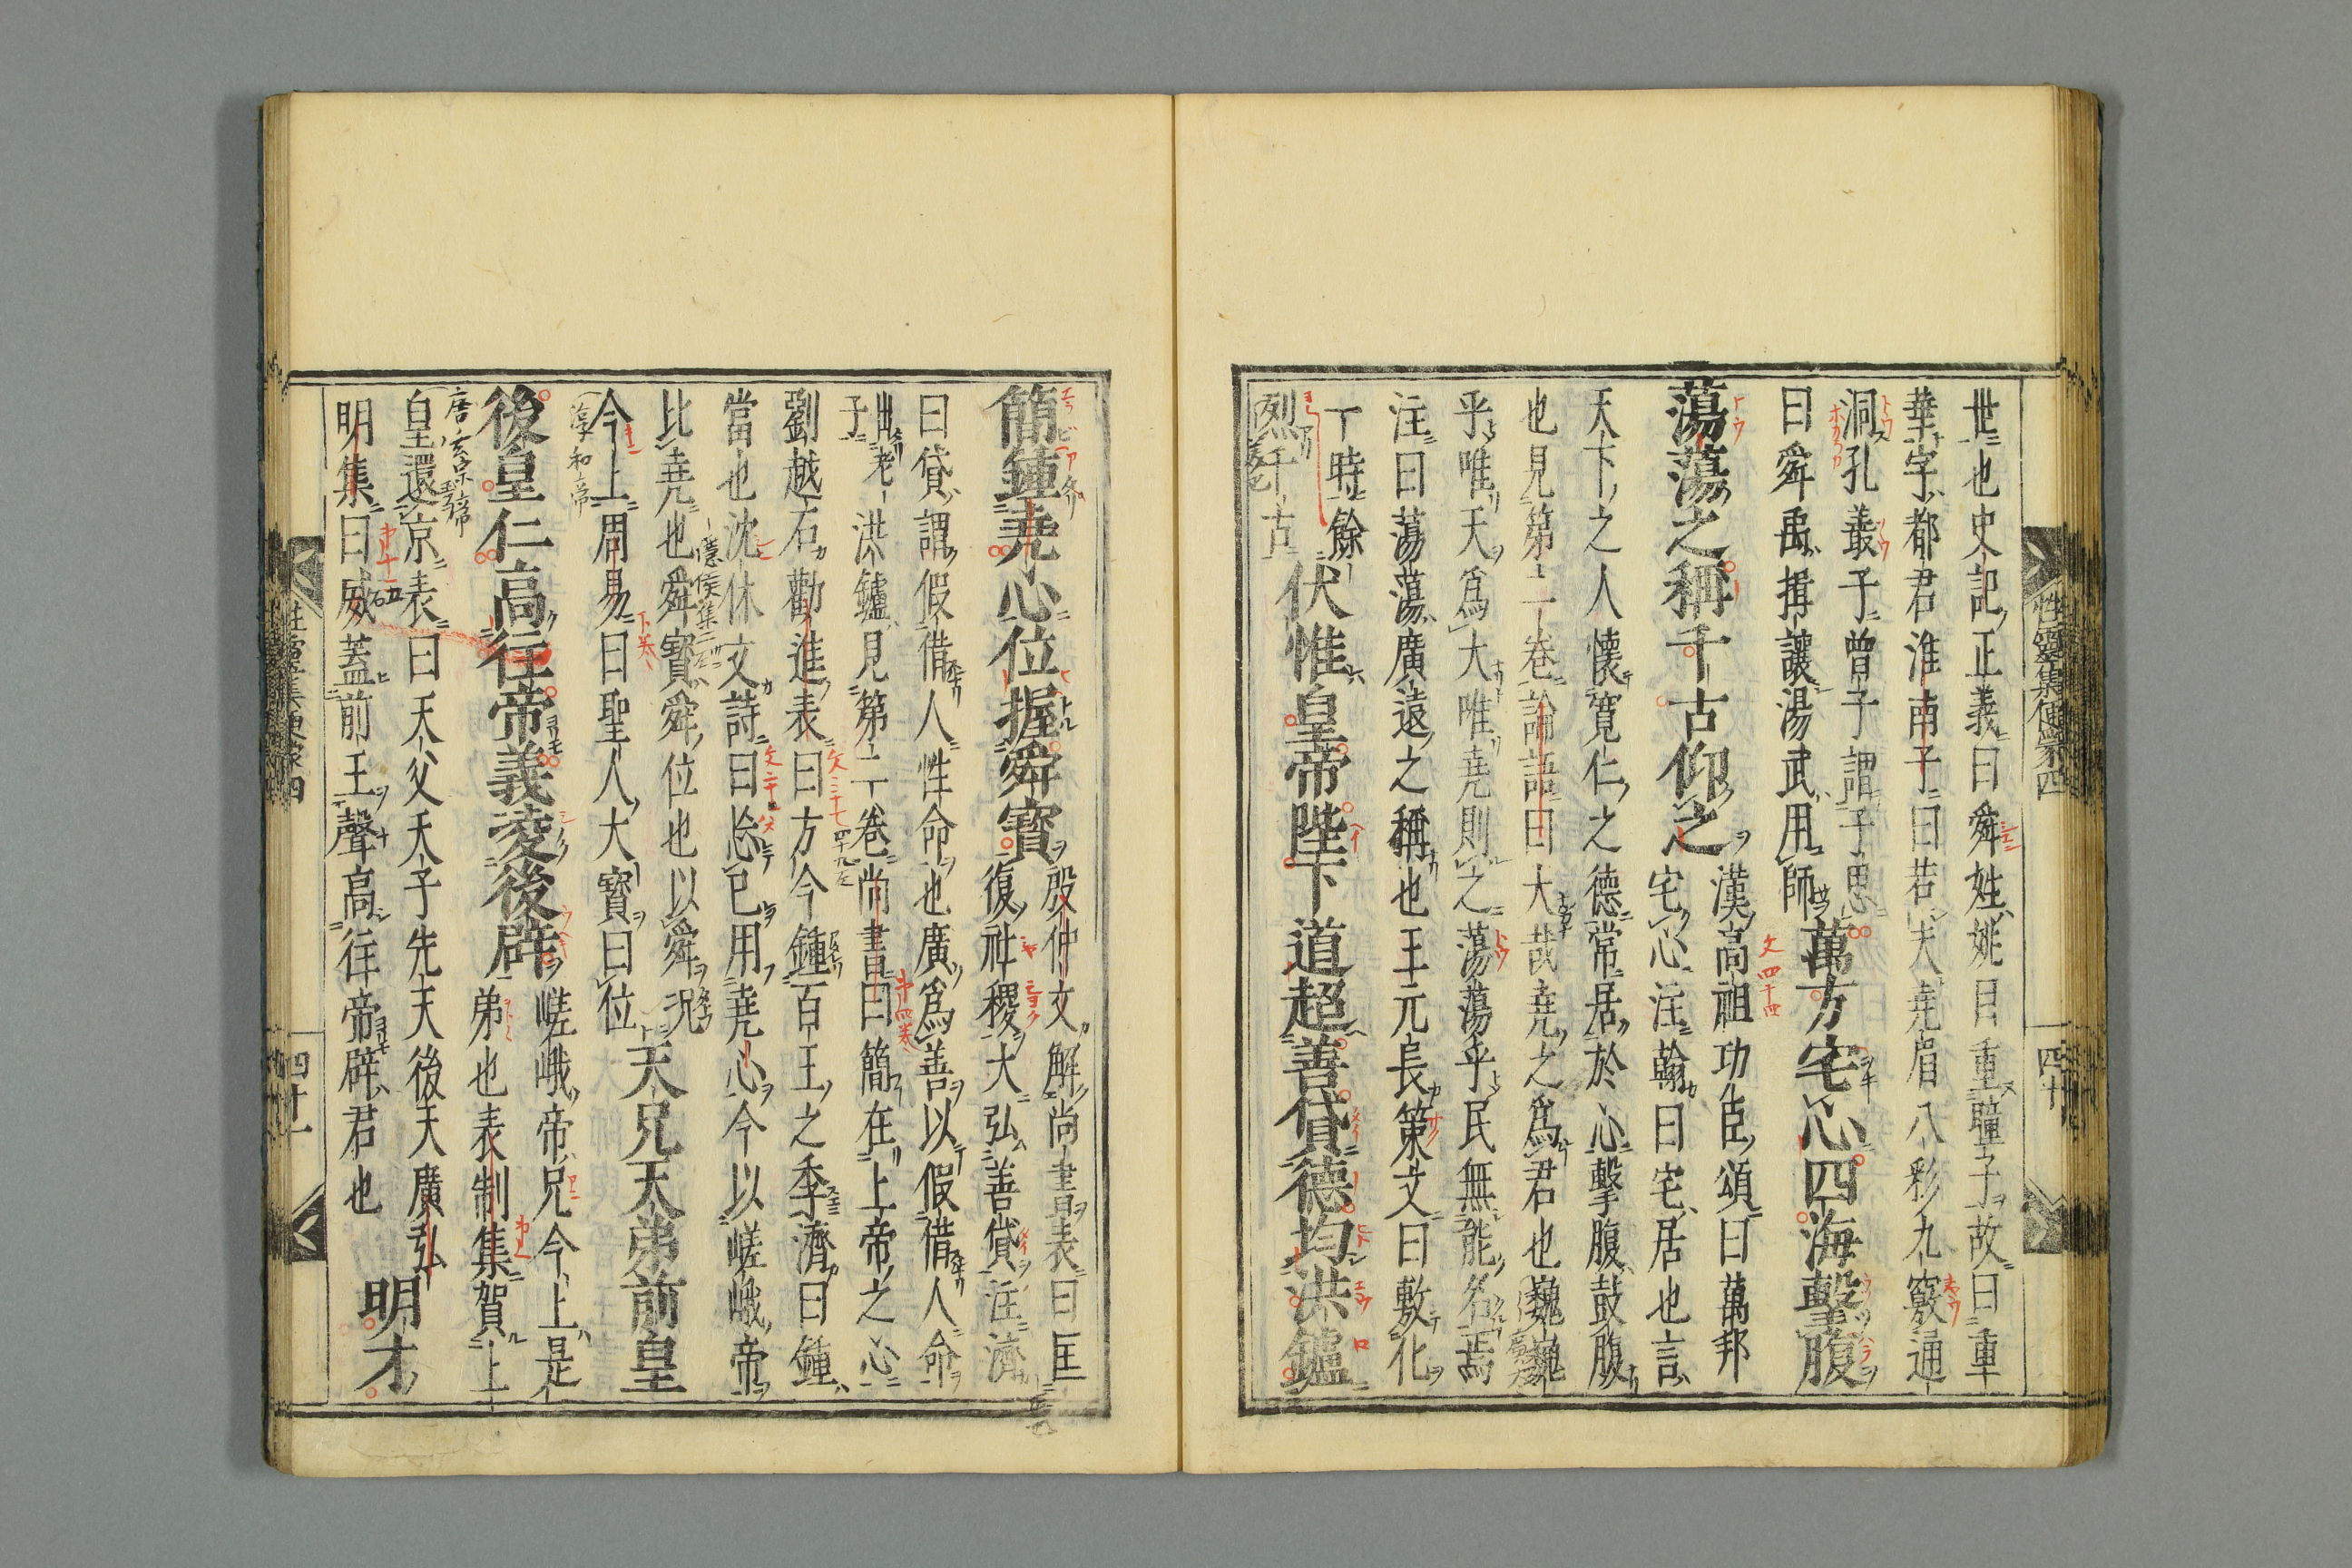 世也史記正義曰舜姓姚目重瞳子故曰重
華字都君淮南子曰若夫堯眉八彩九竅通
洞孔叢子曾子謂子思
曰舜禹揖讓湯武用師
萬方宅心四海擊腹
蕩蕩之稱千古仰之
漢高祖功臣頌曰萬邦
宅心注翰曰宅居也言
天下之人懷寬仁之德常居於心擊腹鼓腹
也見第二卷論語曰大哉堯之為君也巍巍
乎唯天為大唯堯則之蕩蕩乎民無能名焉
注曰蕩蕩廣遠之稱也王元長策文曰敷化
一時餘
烈千古
伏惟皇帝陛下道超善貸德均洪鑪
簡鍾堯心位握舜寶
殷仲文解尚書表曰匡
復社稷大弘善貸注濟
曰貸謂假借人性命也廣為善以假借人命
出老
子
洪鑪見第二卷尚書曰簡在上帝之心
劉越石勸進表曰方今鍾百王之季濟曰鍾
當也沈休文詩曰忩已用堯心今以嵯峨帝
比堯也舜寶舜位也以舜況
今上周易曰聖人大寶曰位
天兄天弟前皇
後皇仁高往帝義凌後辟
嵯峨帝兄今上是
弟也表制集賀上
皇還京表曰天父天子先天後天廣弘
明集曰威蓋前王聲高往帝辟君也
明才
性靈集便蒙四
四十
四十一